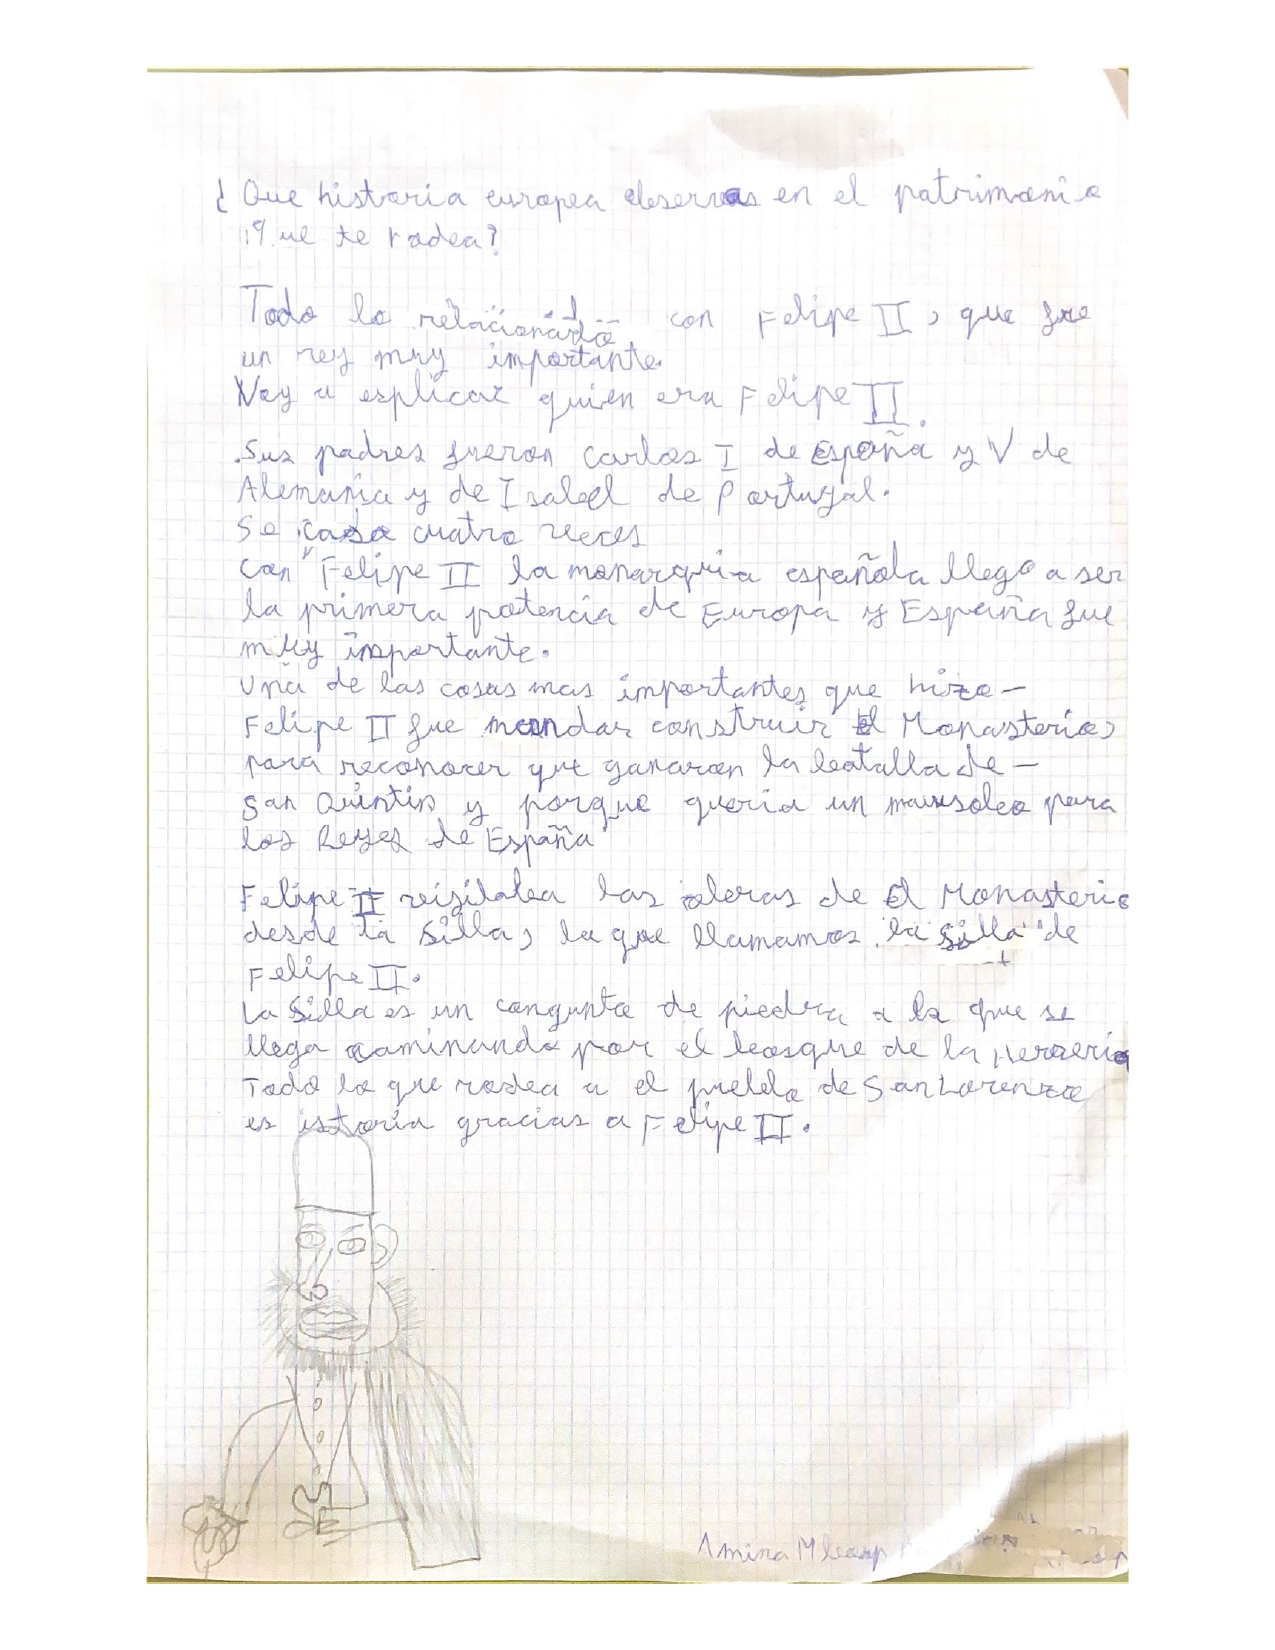 ¿Que historia europea observas en el patrimonio
que te rodea?
Todo lo relacionado con Felipe II, que fue
un rey muy importante.
Voy a esplicar quien era Felipe II.
Sus padres fueron Carlos I de España y V de
Alemania y de Isabel de Portugal.
Se caso cuatro veces
con Felipe II la monarquia española llego a ser
la primera potencia de Europa y España fue
muy importante.
Una de las cosas mas importantes que hizo
Felipe II fue mandar construir El Monasterio,
para reconocer que ganaron la batalla de
San Quintin y porque queria un mausoleo para
los Reyes de España
Felipe II vigilaba las obras de El Monasterio
desde la Silla, la que llamamos la Silla de
Felipe II.
La Silla es un congunto de piedra a la que se
llega caminando por el bosque de la Herreria
Todo lo que rodea a el pueblo de San Lorenzo
es istoria gracias a Felipe II.
Amira